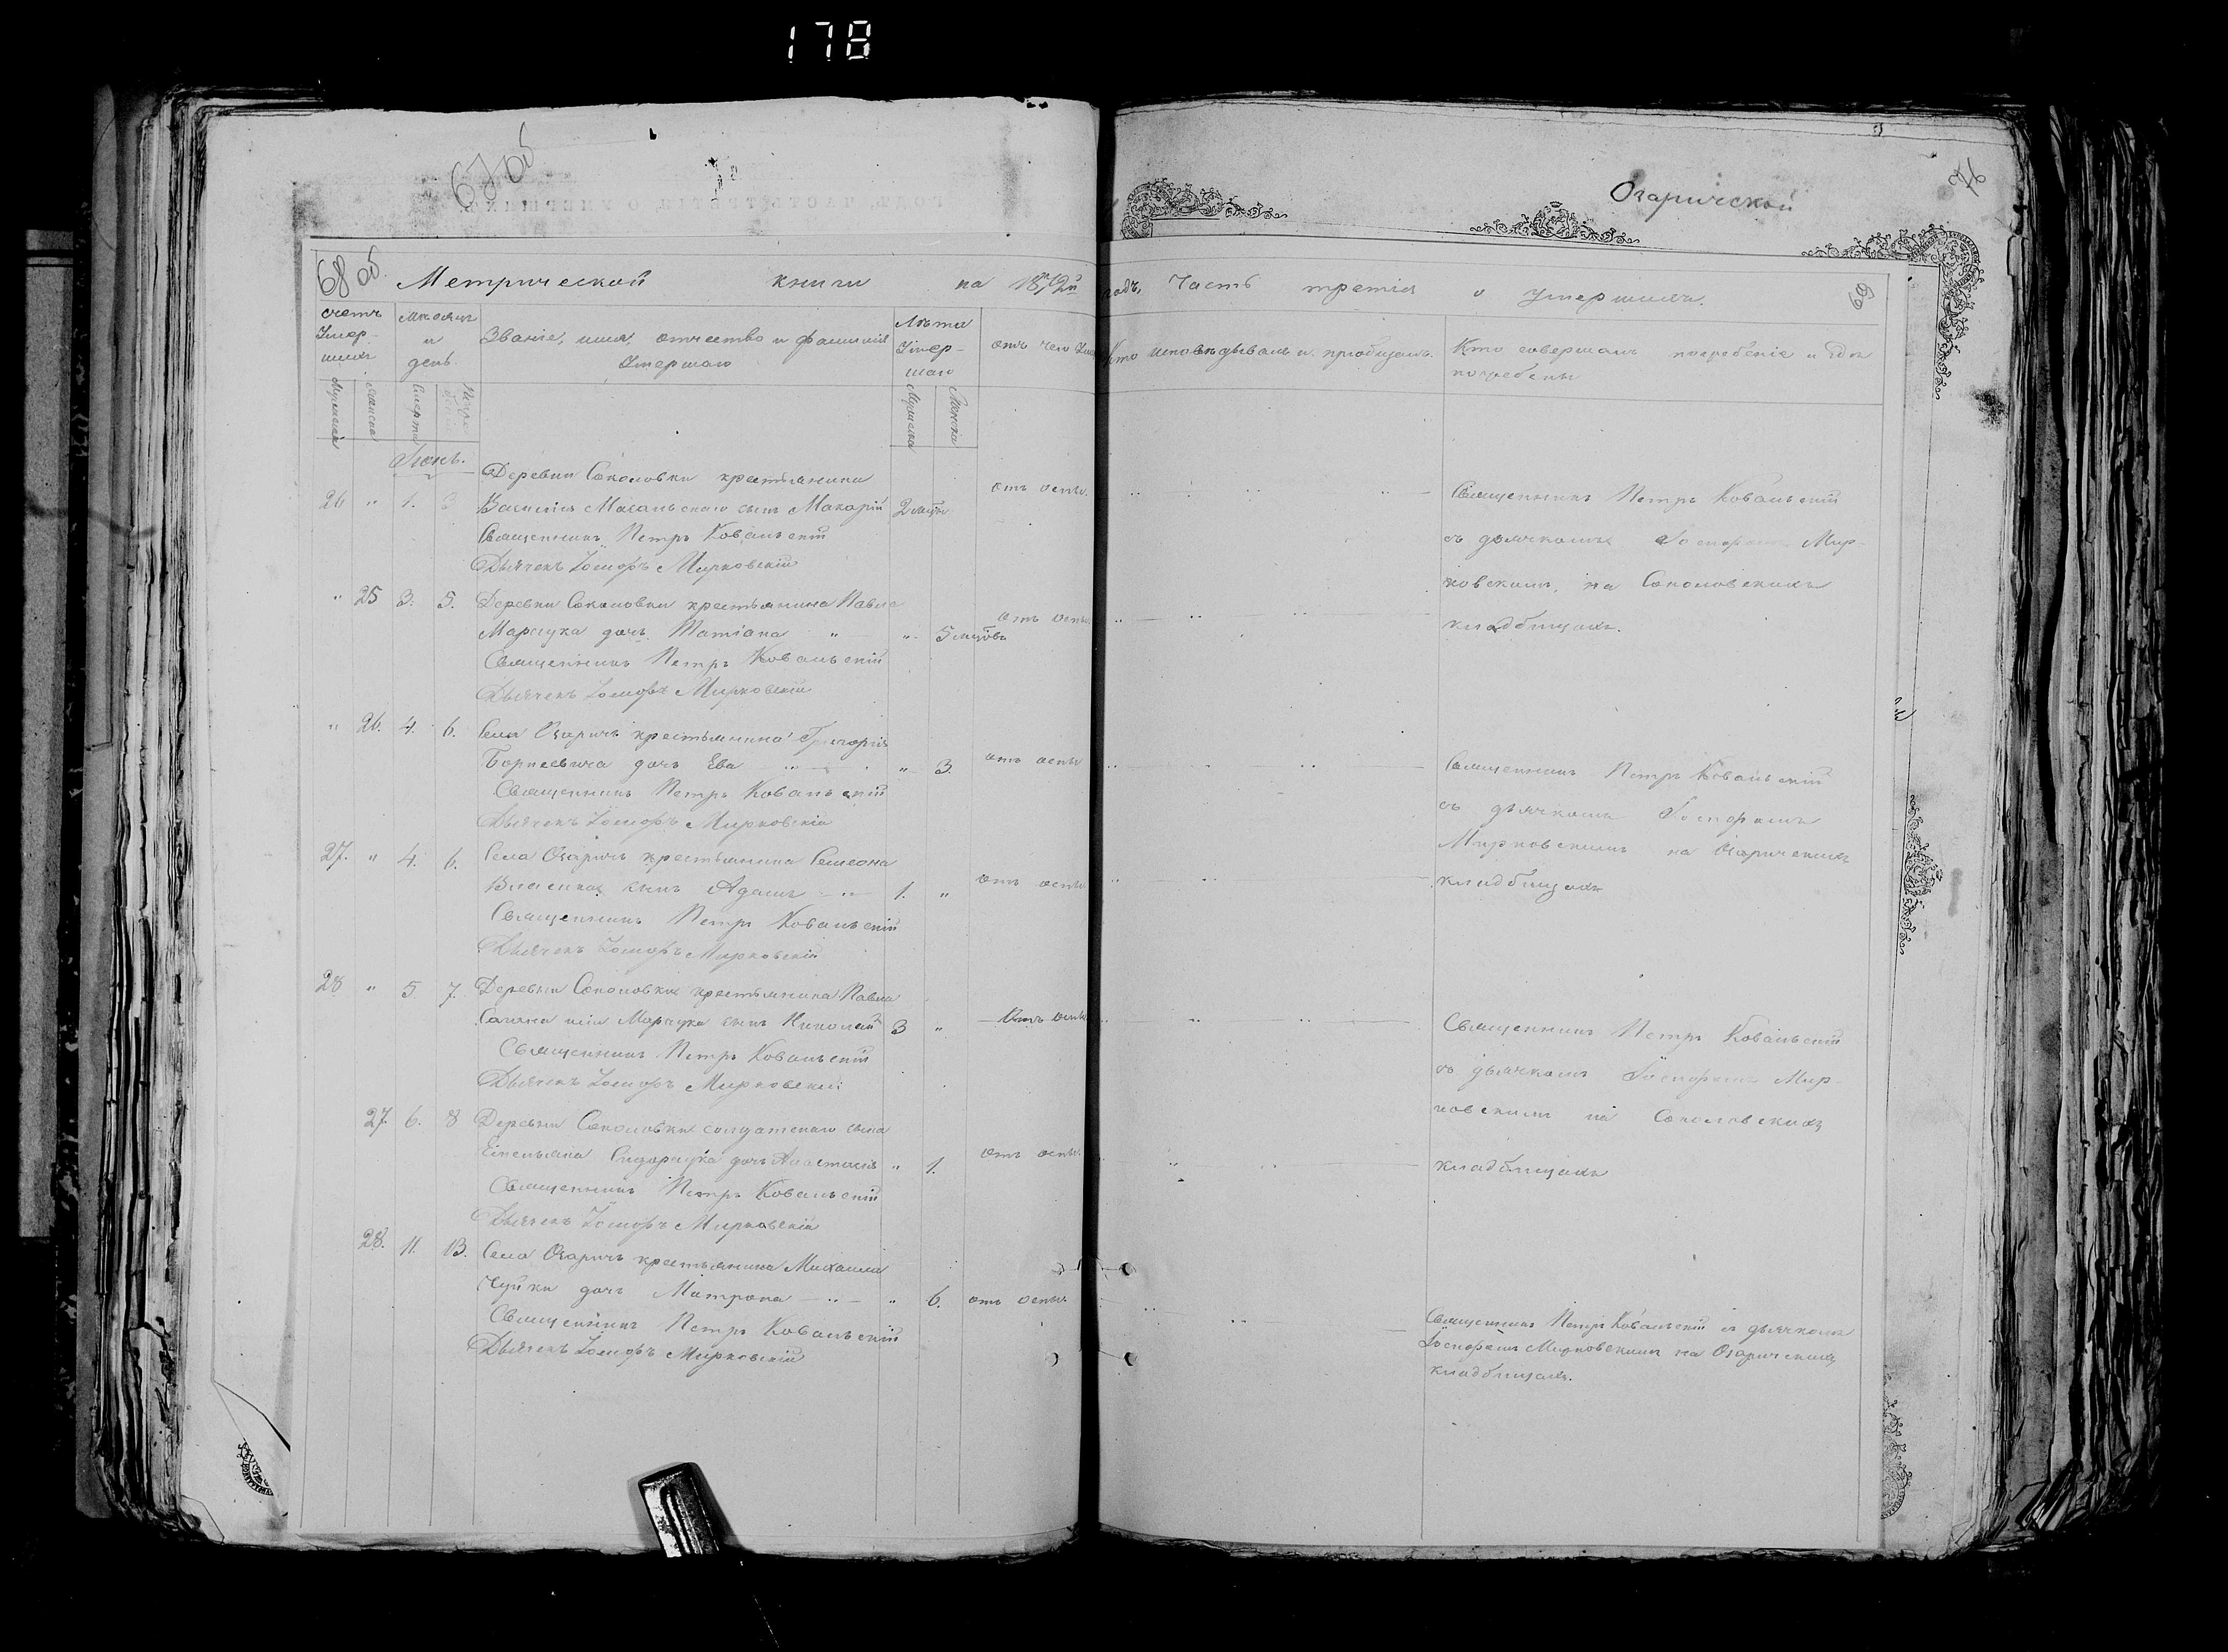 178
67 об
Озарической
76
68 об.
Метрической книги на 1872й
годъ, Часть третія о Умершихъ.
69
счетъ Умершихъ
Мѣсяцъ и день
Званіе, имя, отчество и фамилія Умершаго
Лѣта Умершаго
отъ чего
Кто исповѣдывалъ и пріобщалъ.
Кто совершалъ погребеніе и гдѣ погребены
Мужеска
Женска
Смерти
Мужеска
Женска
Іюнь.
Деревни Соколовки крестьянина
26 " 1. 3 Василія сынъ Макарій 2 мѣс. отъ оспы.
Священникъ Петръ Ковальскій
Дьячекъ Іосифъ Мирковскій
Священникъ Петръ Ковальскій
съ дьячкомъ Іосифомъ Мир-
ковскимъ, на Соколовскихъ
кладбищахъ.
" 25 3. 5. Деревни Соколовки крестьянина Павла
Марчука дочь Татіана " " 5 мѣсцовъ отъ оспы.
Священникъ Петръ Ковальскій
Дьячекъ Іосифъ Мирковскій
" 26. 4. 6. Села Озаричъ крестьянина Григорія
дочь Ева " 3. отъ оспы
Священникъ Петръ Ковальскій
Дьячекъ Іосифъ Мирковскій
Священникъ Петръ Ковальскій
съ дьячкомъ Іосифомъ
Мирковскимъ на Озарическихъ
кладбищахъ
27. " 4. 6. Села Озаричъ крестьянина Симеона
сынъ Адамъ 1. " отъ оспы
Священникъ Петръ Ковальскій
Дьячекъ Іосифъ Мирковскій
28 " 5 7. Деревни Соколовки крестьянина Павла
Марчука сынъ Николай 3 " Отъ оспы
Священникъ Петръ Ковальскій
Дьячекъ Іосифъ Мирковскій
Священникъ Петръ Ковальскій
съ дьячкомъ Іосифомъ Мир-
ковскимъ на Соколовскихъ
кладбищахъ
27. 6. 8 Деревни Соколовки солдатскаго сына
Емельяна Сидорчука дочь Анастасія " 1. отъ оспы.
Священникъ Петръ Ковальскій
Дьячекъ Іосифъ Мирковскій
28. 11. 13. Села Озаричъ крестьянина Михаила
Чуйки дочь Матрона " 6. отъ оспы.
Священникъ Петръ Ковальскій
Дьячекъ Іосифъ Мирковскій
Священникъ Петръ Ковальскій съ дьячкомъ
Іосифомъ Мирковскимъ на Озарическихъ
кладбищахъ.